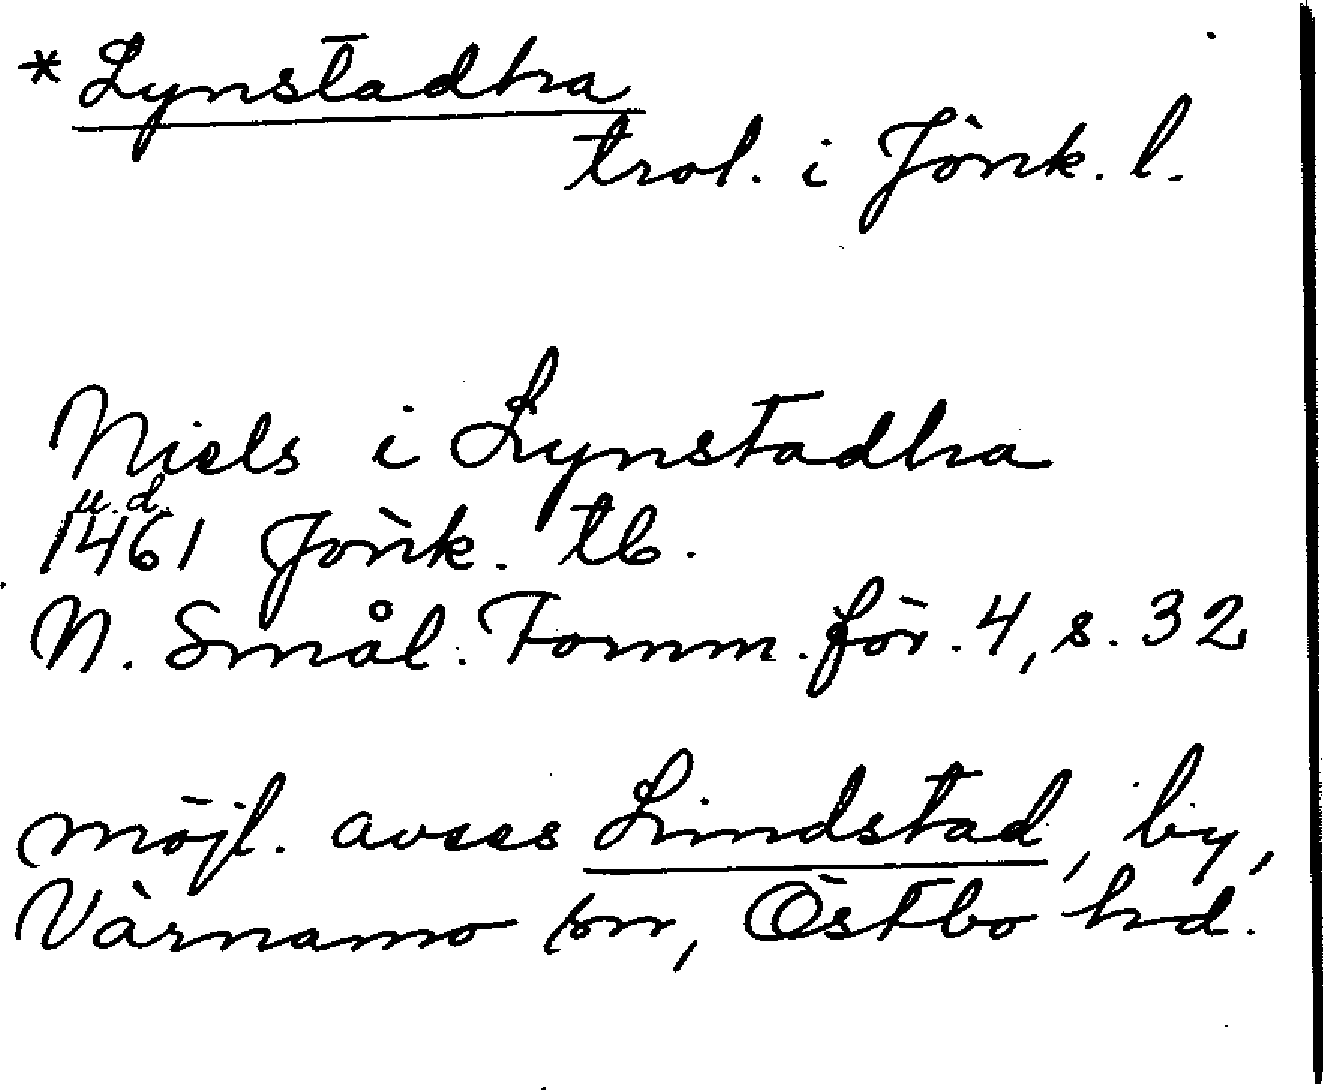 * Lynstadha
trol. i Jönk. l.
Niels i Lynstadha
u.d.
1461 Jönk. tb.
N. Smål. Fornm. för. 4, s. 32
möjl. avses Lindstad, by,
Värnamo sn, Östbo hd.